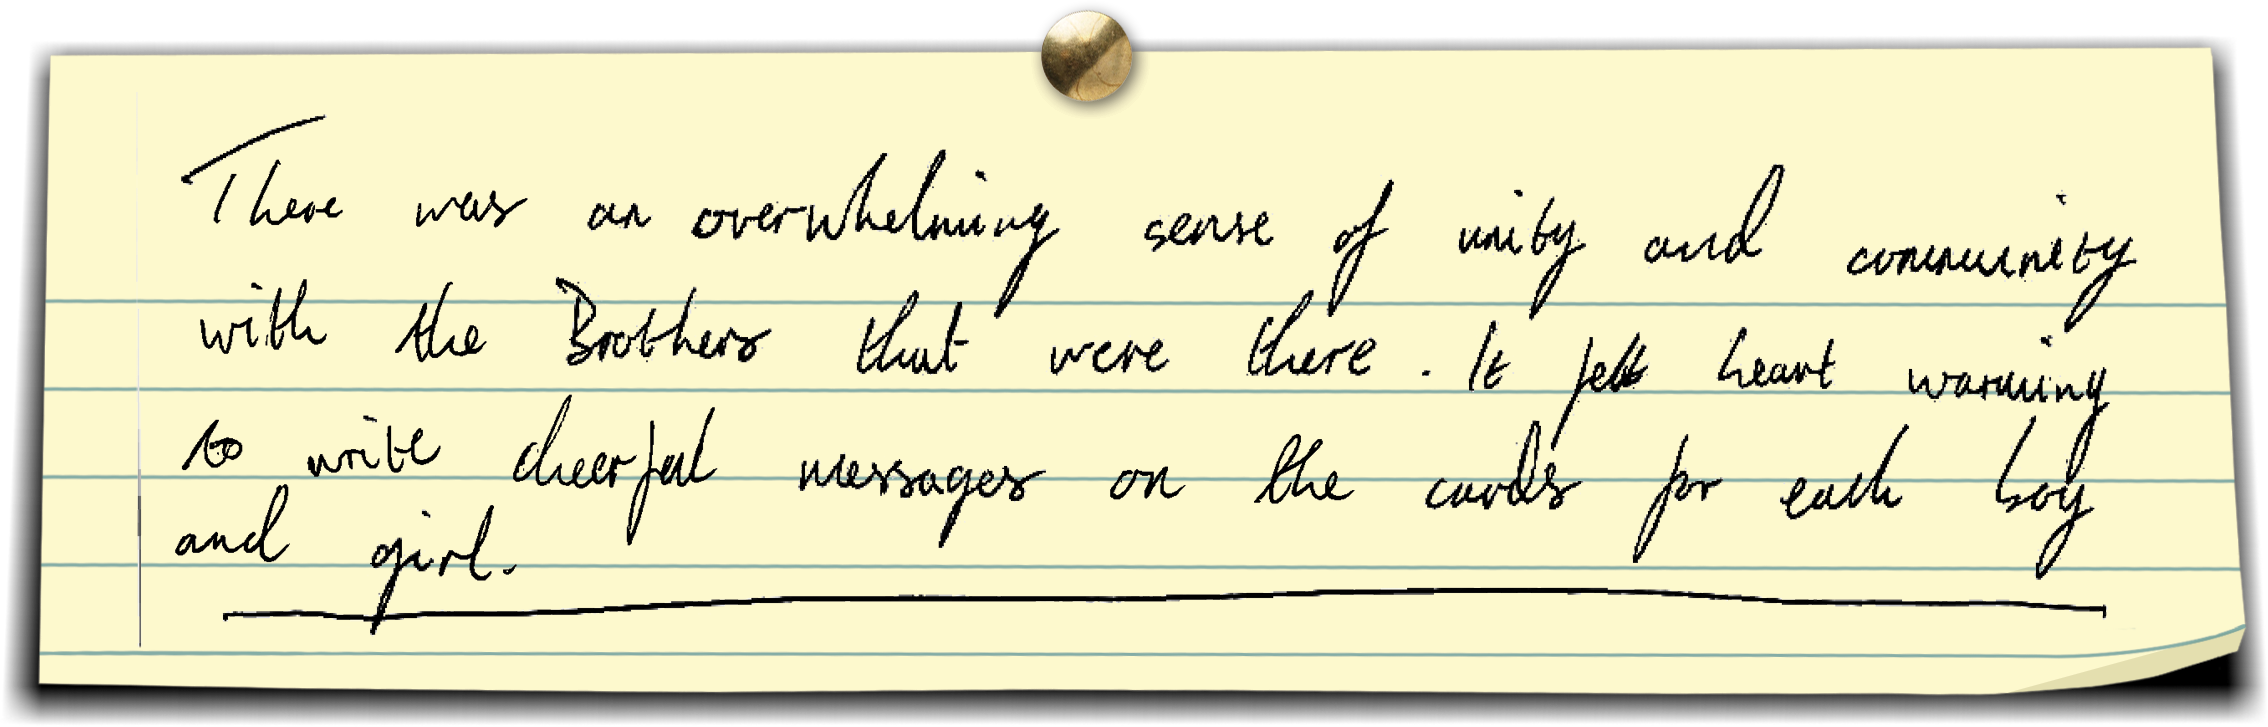 There was an overwhelming sense of unity and community
with the Brothers that were there. It felt heart warming
to write cheerful messages on the cards for each boy
and girl.